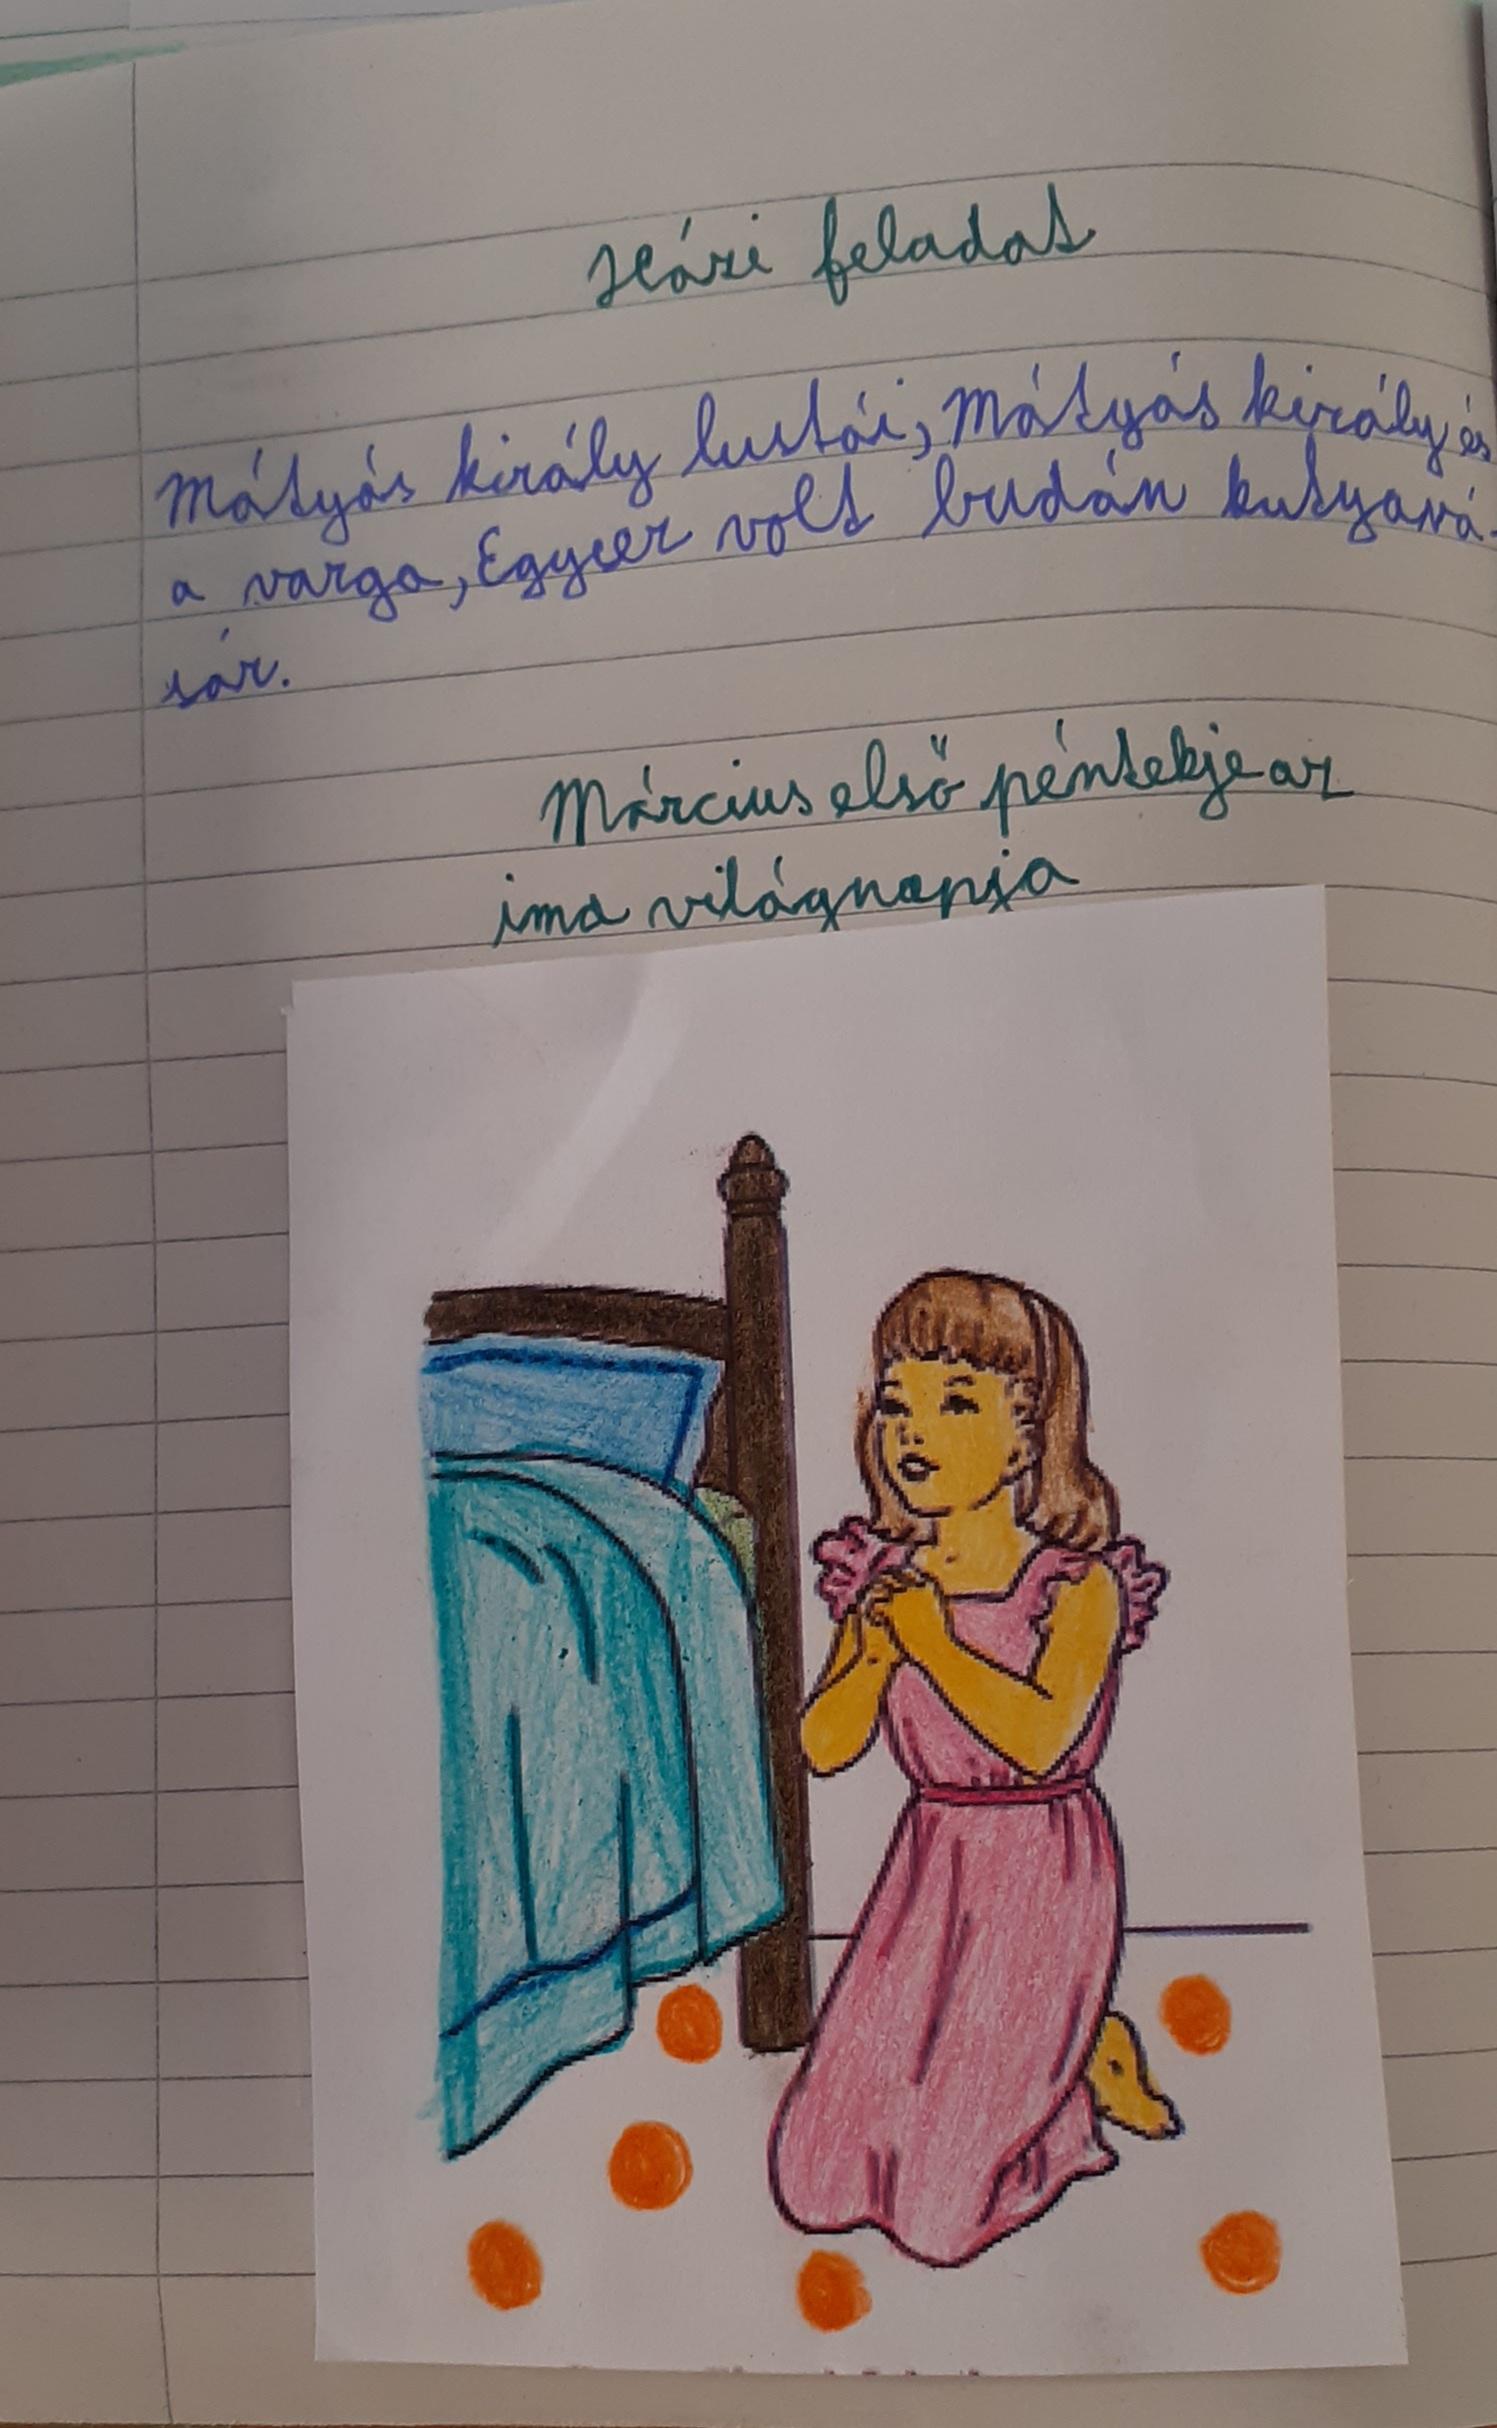 Házi feladat
Mátyás király lustái, Mátyás király és
a varga, Egycer volt budán kutyavá-
sár.
Március első péntekje az
ima világnapja